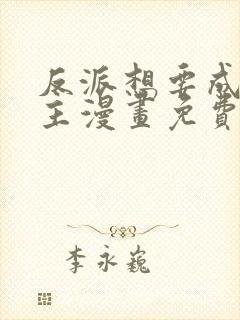 反派想要成
主漫畫免費
李永巍